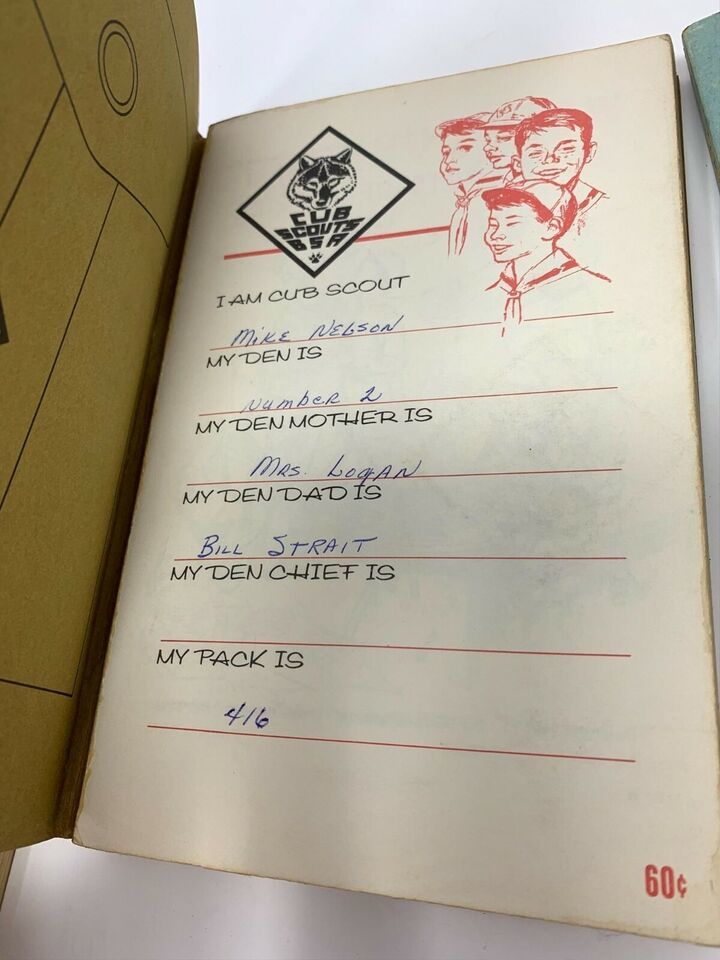 CUB
SCOUTS
BSA
I AM CUB SCOUT
Mike Nelson
MY DEN IS
Number 2
MY DEN MOTHER IS
Mrs. Logan
MY DEN DAD IS
Bill Strait
MY DEN CHIEF IS
MY PACK IS
416
60¢